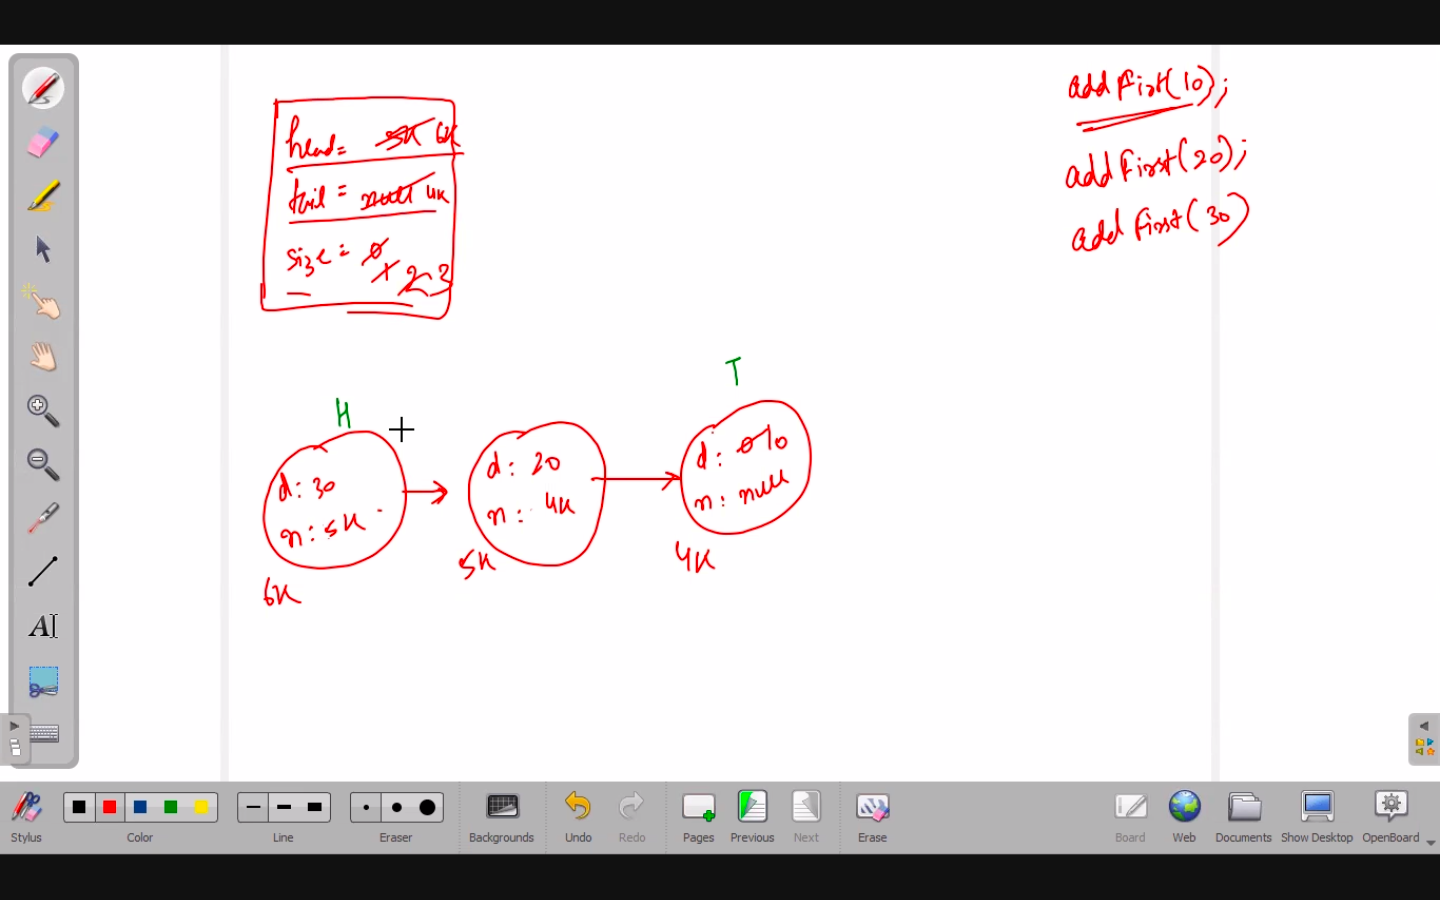 addFirst(10);
head= 5K 6K
tail = null 4K
addFirst(20);
addFirst(30)
size = 0
1 2 3
T
H
d: 30
n: 5K
6K
d: 20
n: 4K
5K
d: 0 10
n: null
4K
A
Stylus
Color
Line
Eraser
Backgrounds
Undo
Redo
Pages
Previous
Next
Erase
Board
Web
Documents
Show Desktop
OpenBoard